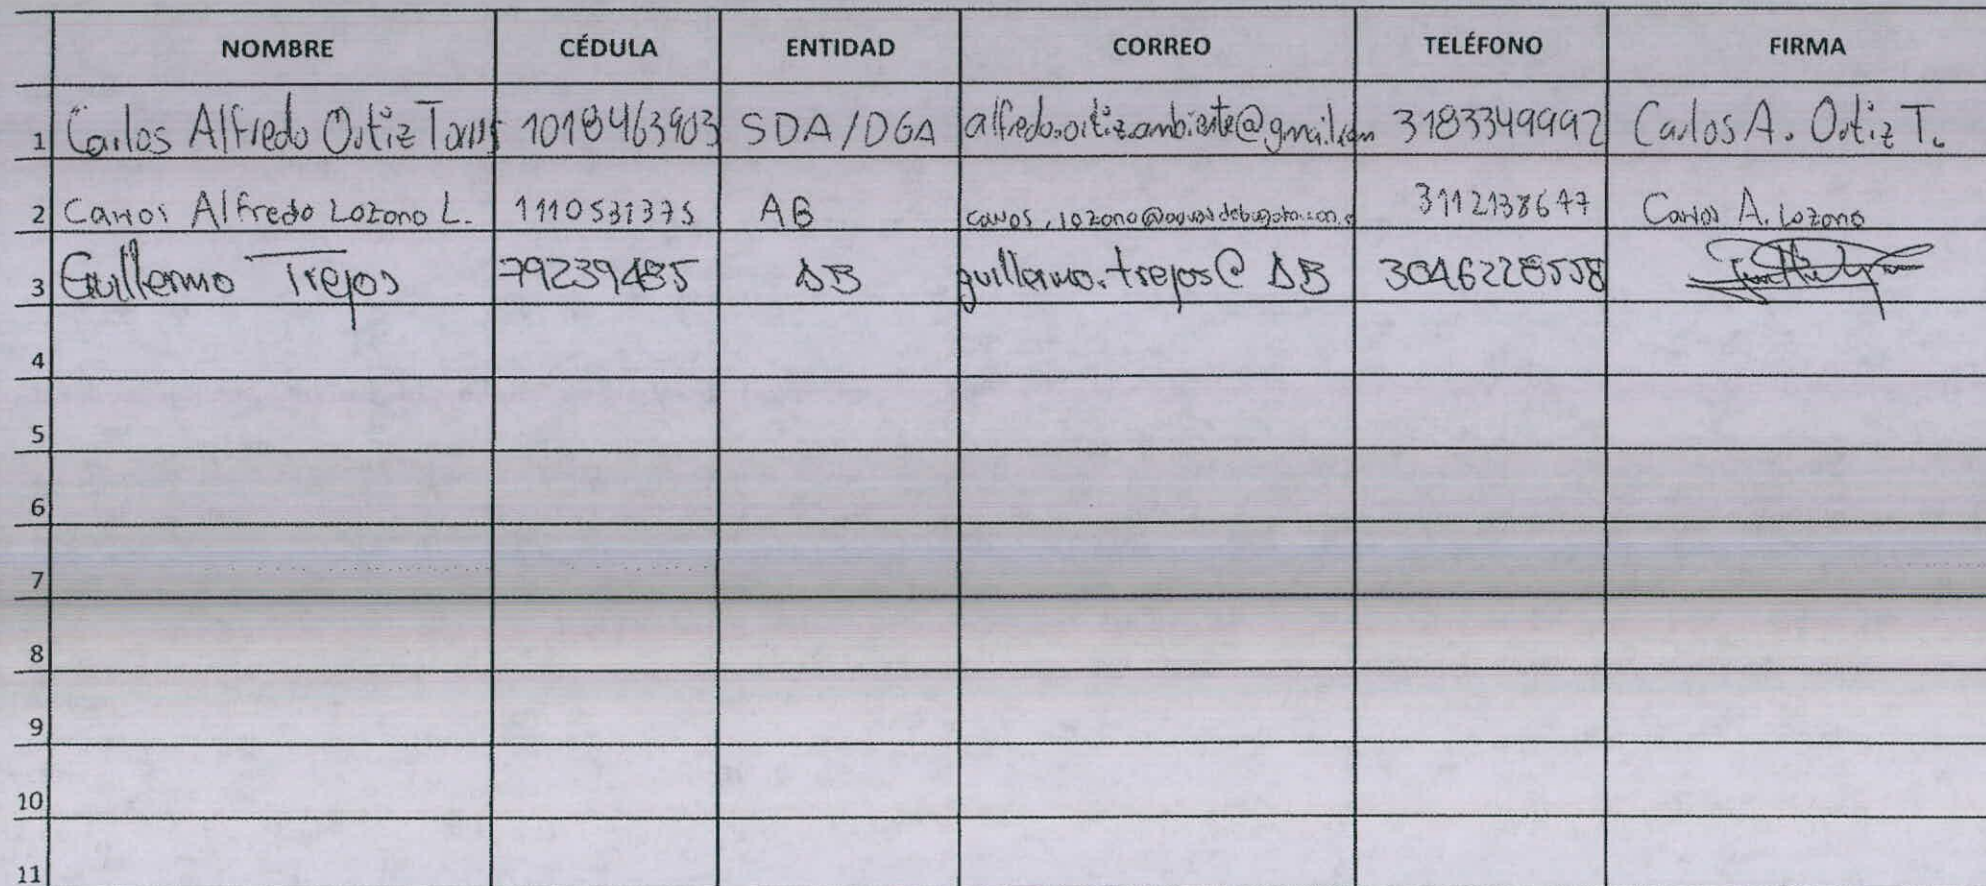 NOMBRE CÉDULA ENTIDAD CORREO TELÉFONO FIRMA
1 Carlos Alfredo Ortiz Torres 1018463903 SDA/DGA alfredo.ortiz.ambiente@gmail.com 3183349992 Carlos A. Ortiz T.
2 Carlos Alfredo Lozano L. 1110531375 AB carlos.lozano@aguasdebogota.com.co 3112138647 Carlos A. Lozano
3 Guillermo Trejos 79239485 AB guillermo.trejos@ AB 3046228558
4
5
6
7
8
9
10
11